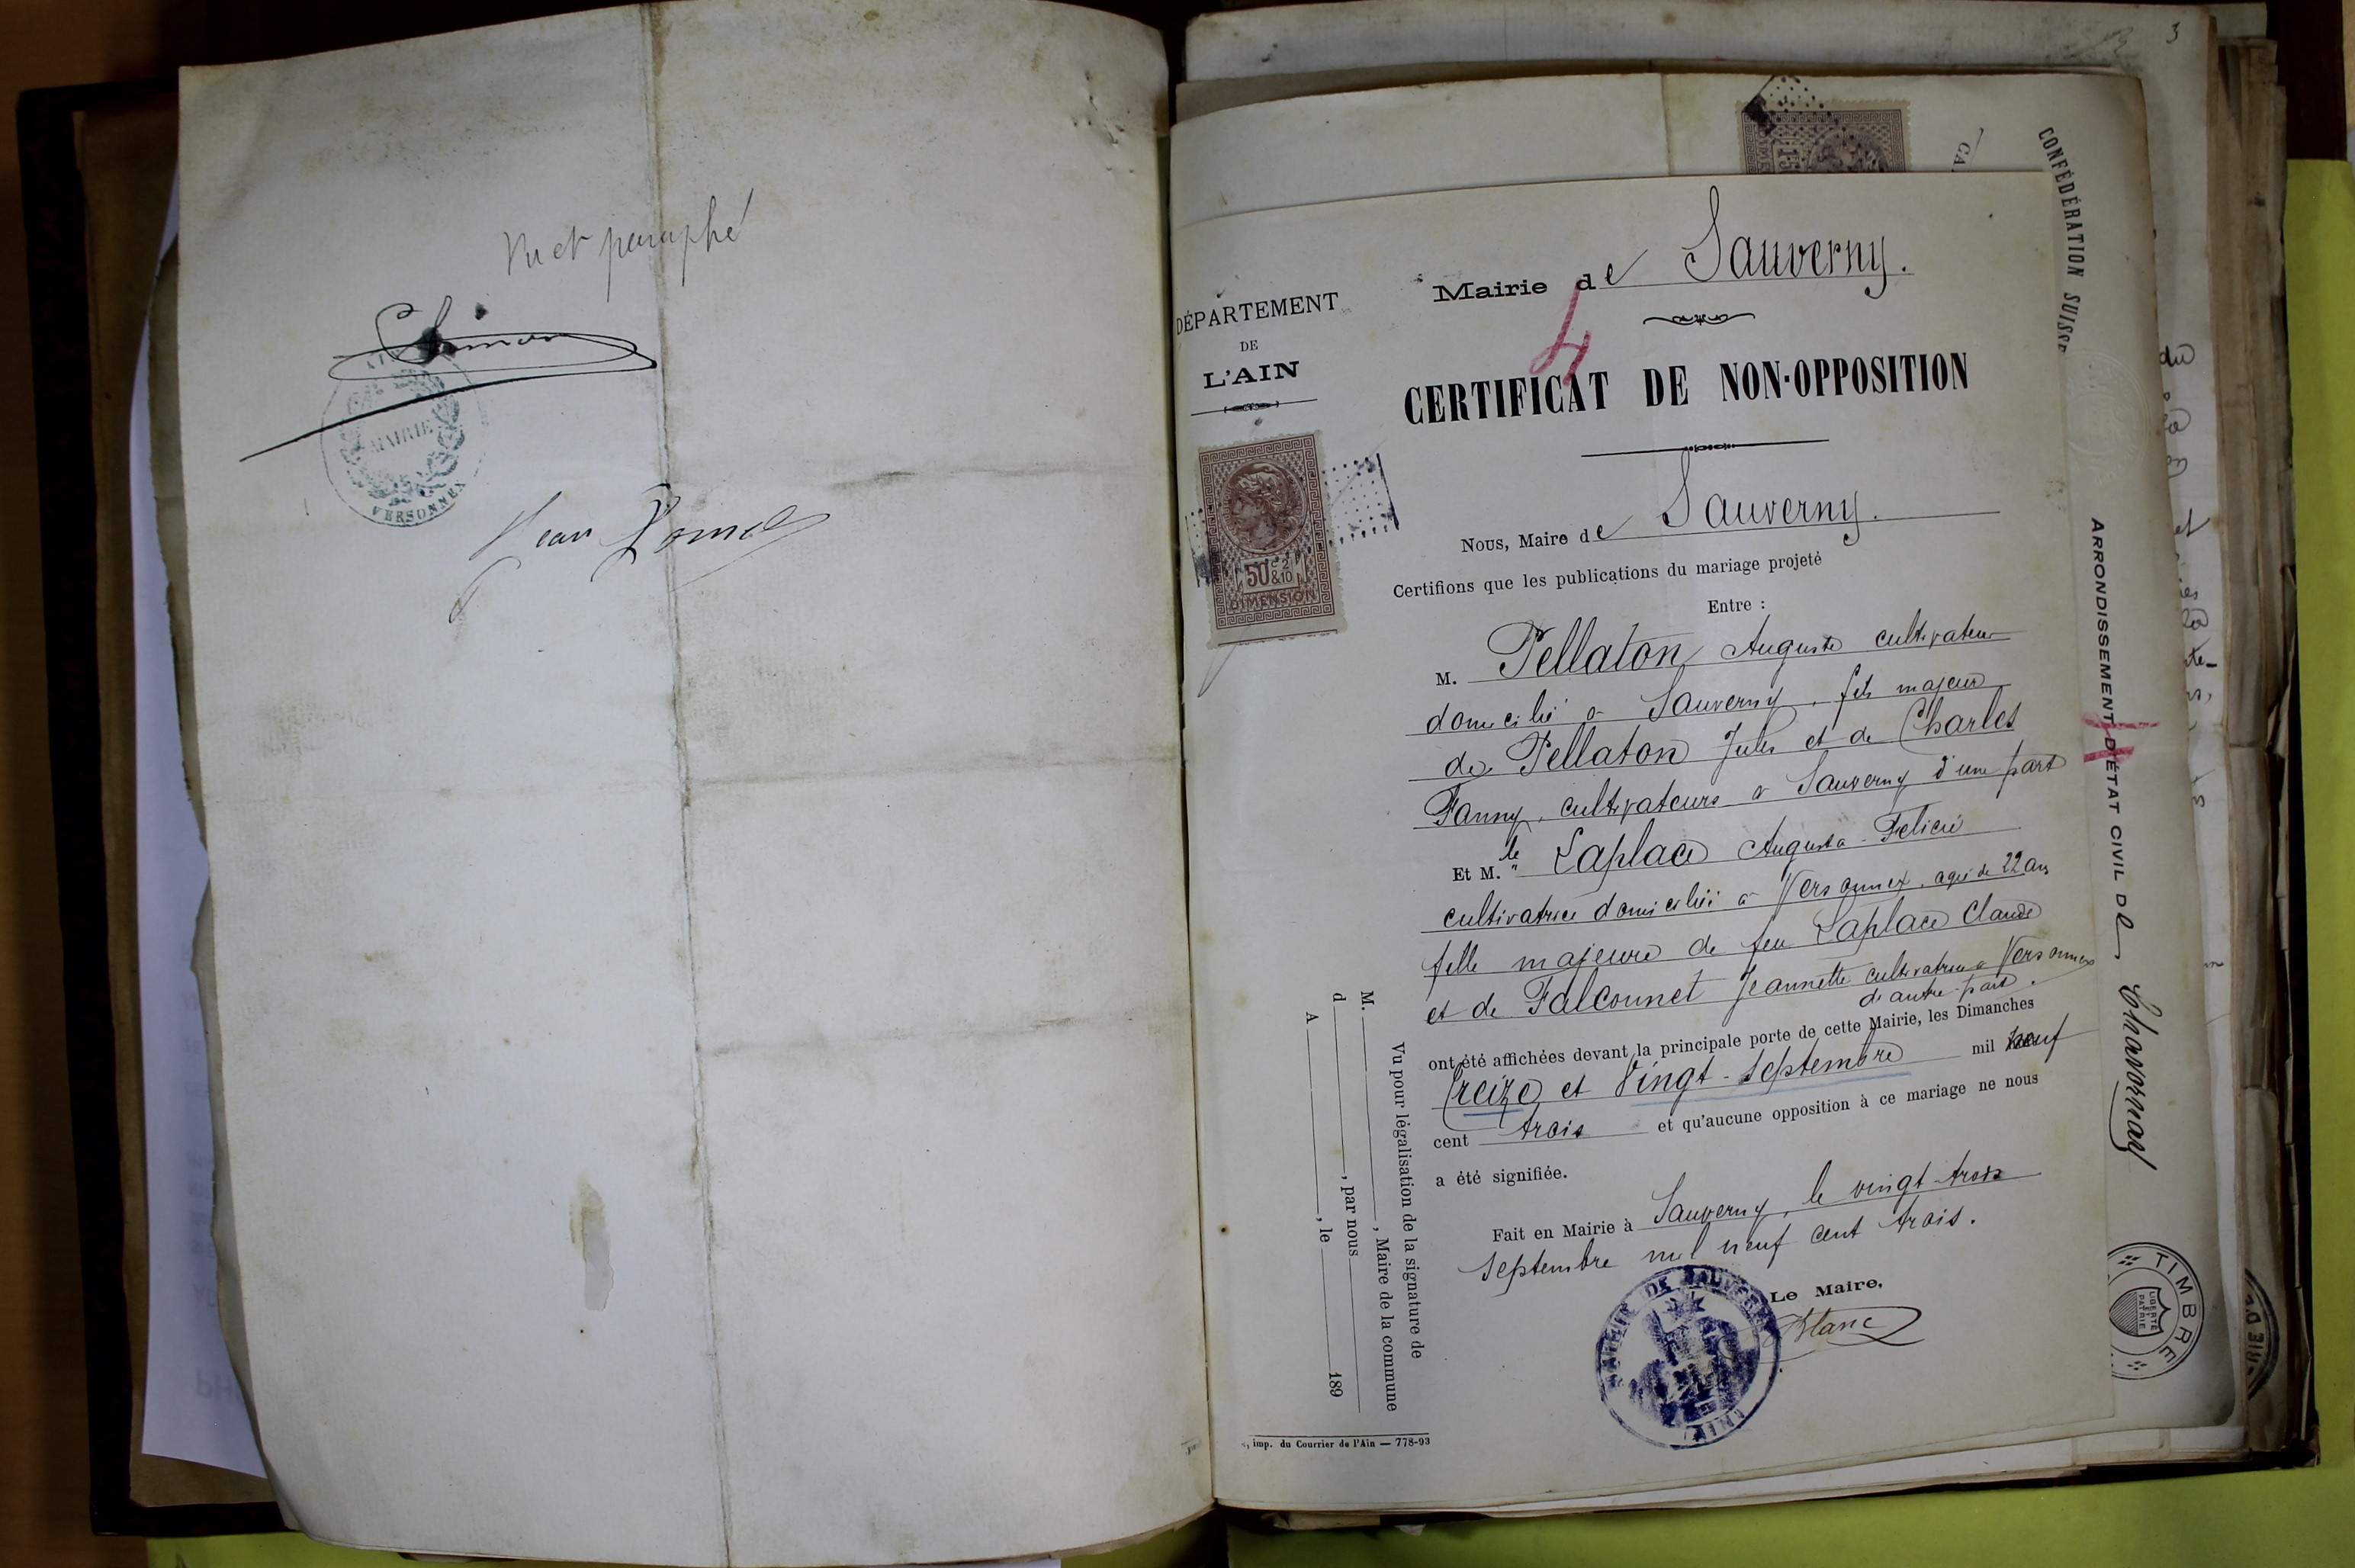 Vu et paraphé
MAIRIE
VERSONNEX
Jean
3
CONFÉDÉRATION SUISSE
ARRONDISSEMENT D'ÉTAT CIVIL De Chavornay
TIMBRE
LIBERTÉ
ET
PATRIE
DÉPARTEMENT
DE
L'AIN
50 c 2/10
DIMENSION
Mairie de Sauverny.
4
CERTIFICAT DE NON-OPPOSITION
Nous, Maire de Sauverny.
Certifions que les publications du mariage projeté
Entre :
M. Pellaton Auguste cultivateur
domicilié à Sauverny, fils majeur
de Pellaton Jules et de Charles
Fanny, cultivateurs à Sauverny d'une part
Et M.lle Laplace Augusta-Felicie
cultivatrice domiciliée à Versonnex, agée de 22 ans
fille majeure de feu Laplace Claude
et de Falconnet Jeannette cultivatrice à Versonnex
d'autre part.
ont été affichées devant la principale porte de cette Mairie, les Dimanches
treize et Vingt-Septembre mil neuf
cent trois et qu'aucune opposition à ce mariage ne nous
a été signifiée.
Fait en Mairie à Sauverny, le vingt-trois
Septembre mil neuf cent trois.
Le Maire,
Blanc
MAIRIE DE SAUVERNY
Vu pour légalisation de la signature de
M. , Maire de la commune
d , par nous
A , le 189
imp. du Courrier de l'Ain — 778-93